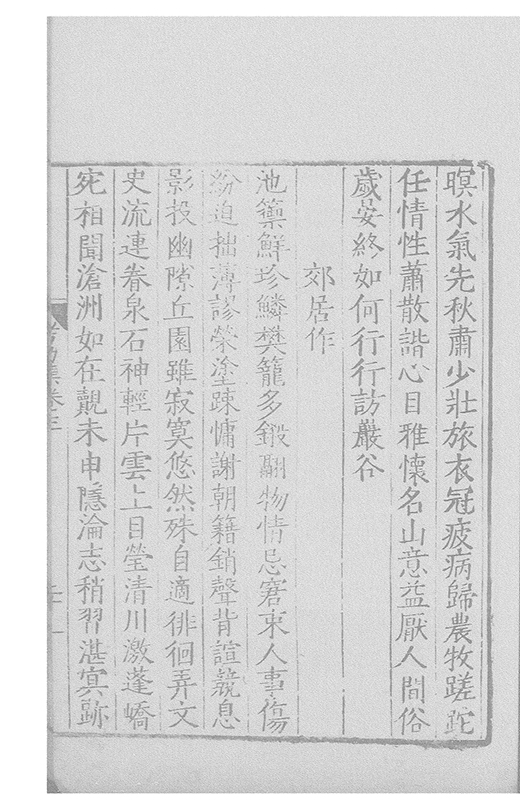 暝水氣先秋肅少壯旅衣冠疲病歸農牧蹉跎
任情性蕭散諧心目雅懷名山意益厭人間俗
歲晏終如何行行訪巖谷
郊居作
池籞鮮珍鱗樊籠多鎩翮物情忌窘束人事傷
紛迫拙薄謬榮塗踈慵謝朝籍銷聲背諠競息
影投幽隙丘園雖寂寞悠然殊自適徘徊弄文
史流連眷泉石神輕片雲上目瑩清川激蓬蟜
宛相聞滄洲如在覿未申隱淪志稍習湛冥跡
集卷三